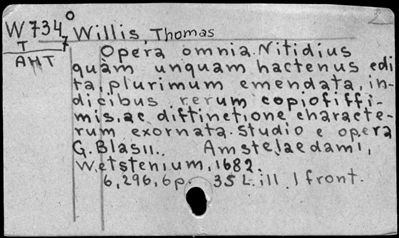 2
W 734 o Willis, Thomas
T 7
AHT
Opera omnia. Nitidius
quàm unquam hactenus edi
ta, plurimum emendata, in-
dicibus rerum copiofiffi-
mis, ac diftinctione characte-
rum exornata. Studio e opera
G. Blasii. Amstelaedami,
Wetstenium, 1682.
6, 296, 6p. 35 L. ill. 1 front.